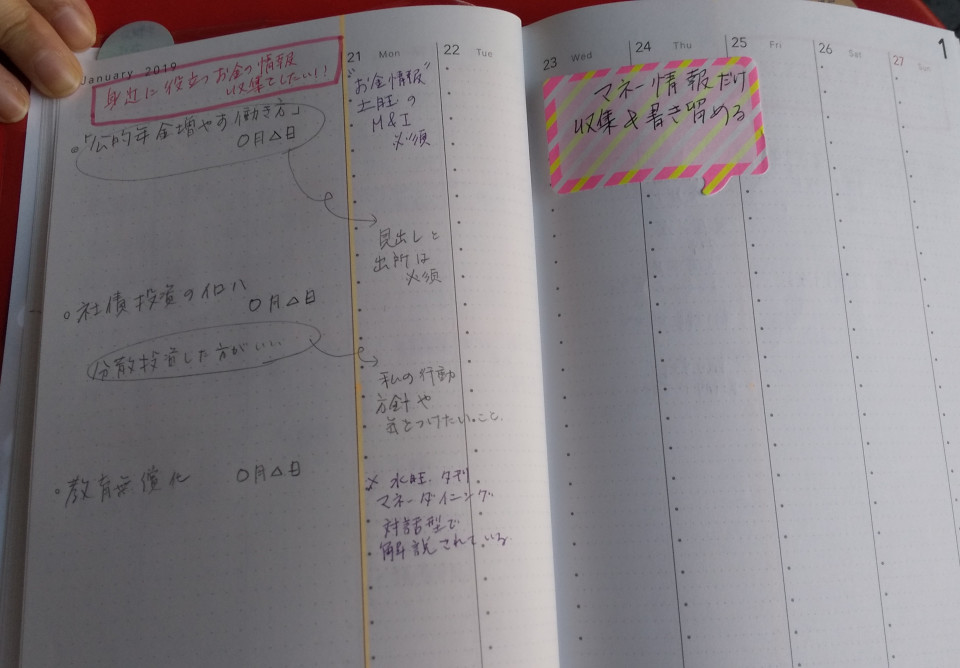 January 2019
身近に役立つお金の情報
収集をしたい!
「公的年金増やす働き方」
○月△日
社債投資のイロハ
○月△日
分散投資した方がいい..
教育無償化 ○月△日
21 Mon
22 Tue
"お金情報"
土旺の
M&I
必須
見出しと
出所は
必須
私の行動
方針や
気をつけたいこと.
※水旺.夕刊
マネーダイニング
対話型で
解説されている.
23 Wed
24 Thu
25 Fri
26 Sat
27 Sun
1
マネー情報だけ
収集&書き留める